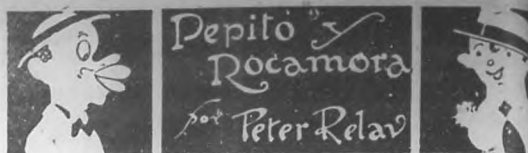 Pepito" y
Rocamora
por Peter Relav